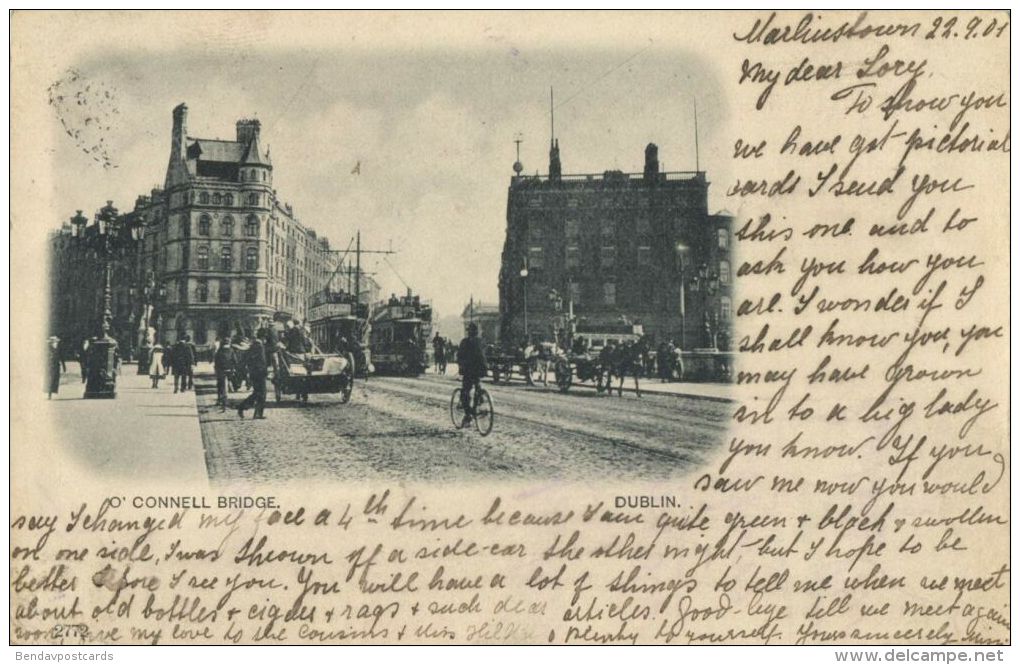 Marlinstown 22.9.01
My dear Lory,
To show you
we have got pictorial
cards I send you
this one and to
ask you how you
are. I wonder if I
shall know you, you
may have grown
in to a big lady
you know. If you
saw me now you would
O' CONNELL BRIDGE. DUBLIN.
say I changed my face a 4th time because I am quite green + black + swollen
on one side, I was thrown off a side-car the other night, but I hope to be
better before I see you. You will have a lot of things to tell me when we meet
about old bottles + cigars + rags + such dear articles. Good-bye till we meet again
soon. Give my love to the cousins + Miss + plenty to yourself. Yours sincerely
2772
Bendavpostcards
www.delcampe.net